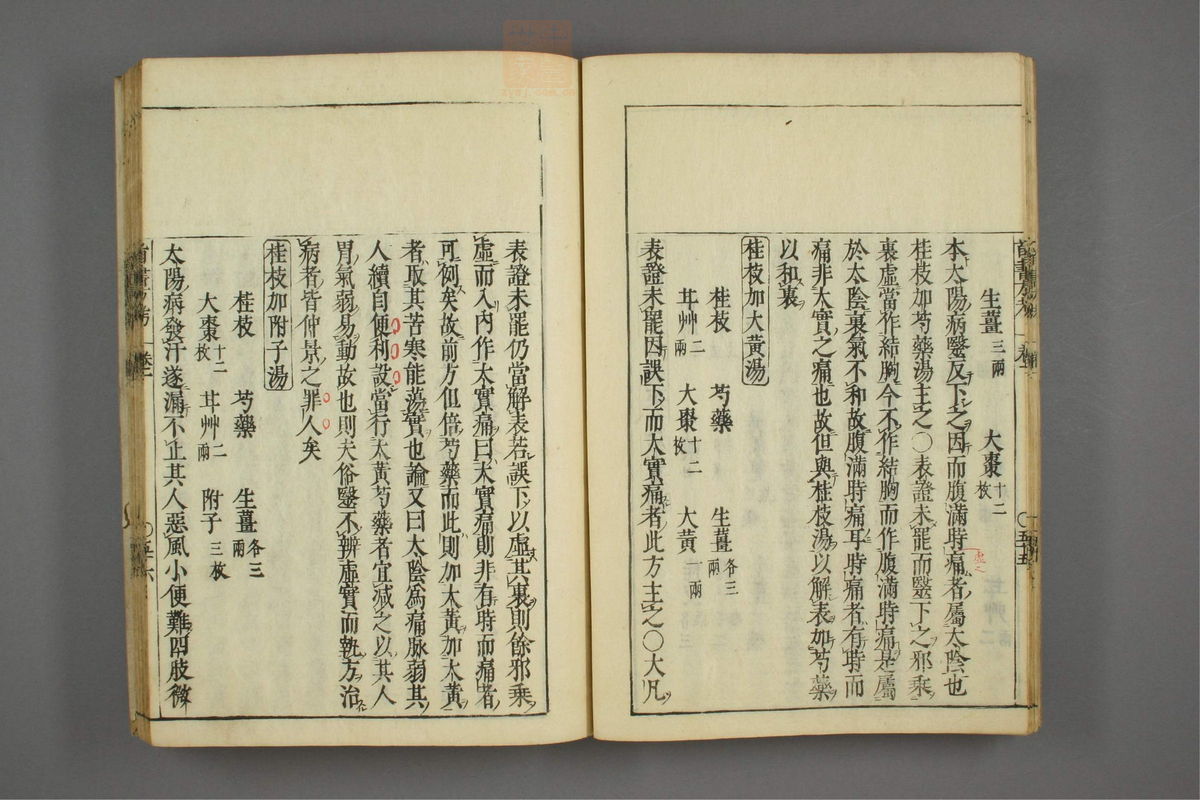 生薑三兩 大棗十二枚
本太陽病醫反下之因而腹滿時痛者屬太陰也
桂枝加芍藥湯主之〇表證未罷而醫下之邪乘
裏虛當作結胸今不作結胸而作腹滿時痛是屬
於太陰裏氣不和故腹滿時痛耳時痛者有時而
痛非大實之痛也故但與桂枝湯以解表加芍藥
以和裏
桂枝加大黃湯
桂枝 芍藥 生薑各三兩
甘艸二兩 大棗十二枚 大黃一兩
表證未罷因誤下而大實痛者此方主之〇大凡
表證未罷仍當解表若誤下以虛其裏則餘邪乘
虛而入內作大實痛曰大實痛則非有時而痛者
可例矣故前方但倍芍藥而此則加大黃加大黃
者取其苦寒能蕩實也論又曰太陰為痛脉弱其
人續自便利設當行大黃芍藥者宜減之以其人
胃氣弱易動故也則夫俗醫不辨虛實而執方治
病者皆仲景之罪人矣
桂枝加附子湯
桂枝 芍藥 生薑各三兩
大棗十二枚 甘艸二兩 附子三枚
太陽病發汗遂漏不止其人惡風小便難四肢微